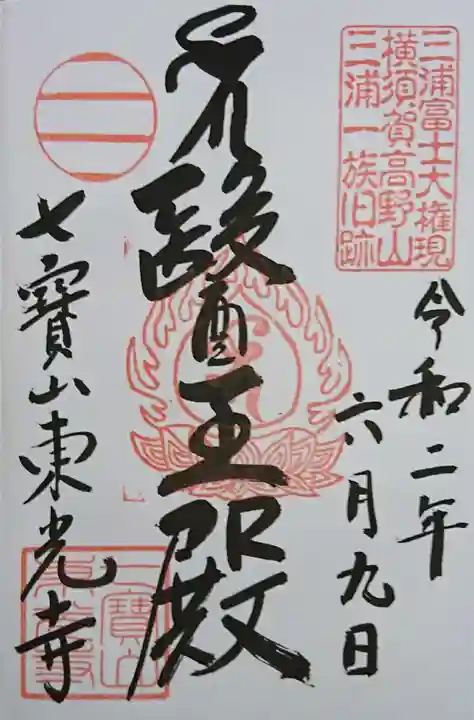 三浦富士大権現
横須賀高野山
三浦一族旧跡
令和二年
六月九日
醫王殿
七寳山東光寺